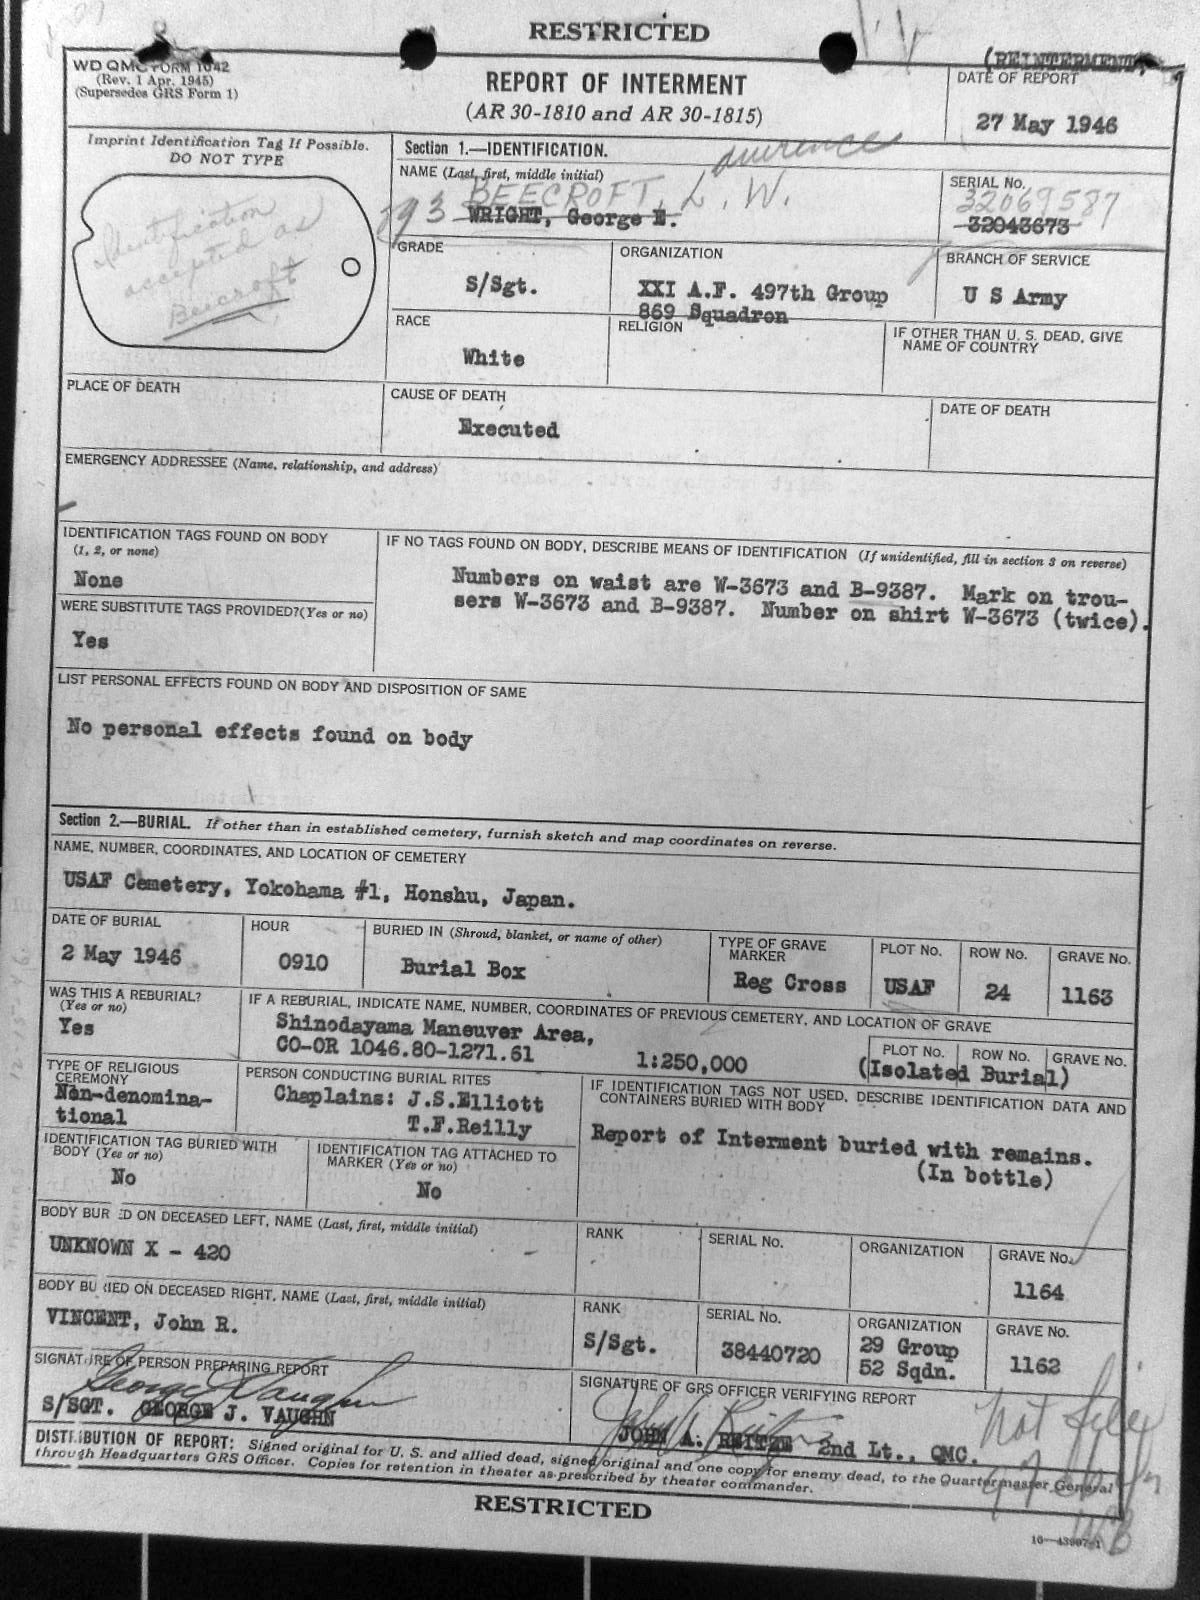 RESTRICTED
(REINTERMENT)
WD QMC FORM 1042
(Rev. 1 Apr. 1945)
(Supersedes GRS Form 1)
REPORT OF INTERMENT
(AR 30-1810 and AR 30-1815)
DATE OF REPORT
27 May 1946
Imprint Identification Tag If Possible.
DO NOT TYPE
Identification
accepted as
Beecroft
Section 1.—IDENTIFICATION.
NAME (Last, first, middle initial)
awrence
BEECROFT, L. W.
WRIGHT, George E.
SERIAL No.
32069587
32043673
GRADE
S/Sgt.
ORGANIZATION
XXI A.F. 497th Group
869 Squadron
BRANCH OF SERVICE
U S Army
RACE
White
RELIGION
IF OTHER THAN U. S. DEAD, GIVE
NAME OF COUNTRY
PLACE OF DEATH
CAUSE OF DEATH
Executed
DATE OF DEATH
EMERGENCY ADDRESSEE (Name, relationship, and address)
IDENTIFICATION TAGS FOUND ON BODY
(1, 2, or none)
None
IF NO TAGS FOUND ON BODY, DESCRIBE MEANS OF IDENTIFICATION (If unidentified, fill in section 3 on reverse)
Numbers on waist are W-3673 and B-9387. Mark on trou-
sers W-3673 and B-9387. Number on shirt W-3673 (twice).
WERE SUBSTITUTE TAGS PROVIDED? (Yes or no)
Yes
LIST PERSONAL EFFECTS FOUND ON BODY AND DISPOSITION OF SAME
No personal effects found on body
Section 2.—BURIAL. If other than in established cemetery, furnish sketch and map coordinates on reverse.
NAME, NUMBER, COORDINATES, AND LOCATION OF CEMETERY
USAF Cemetery, Yokohama #1, Honshu, Japan.
DATE OF BURIAL
2 May 1946
HOUR
0910
BURIED IN (Shroud, blanket, or name of other)
Burial Box
TYPE OF GRAVE
MARKER
Reg Cross
PLOT No.
USAF
ROW No.
24
GRAVE No.
1163
WAS THIS A REBURIAL?
(Yes or no)
Yes
IF A REBURIAL, INDICATE NAME, NUMBER, COORDINATES OF PREVIOUS CEMETERY, AND LOCATION OF GRAVE
Shinodayama Maneuver Area,
CO-OR 1046.80-1271.61 1:250,000
PLOT No. ROW No. GRAVE No.
(Isolated Burial)
TYPE OF RELIGIOUS
CEREMONY
Non-denomina-
tional
PERSON CONDUCTING BURIAL RITES
Chaplains: J.S.Elliott
T.F.Reilly
IF IDENTIFICATION TAGS NOT USED, DESCRIBE IDENTIFICATION DATA AND
CONTAINERS BURIED WITH BODY
Report of Interment buried with remains.
(In bottle)
IDENTIFICATION TAG BURIED WITH
BODY (Yes or no)
No
IDENTIFICATION TAG ATTACHED TO
MARKER (Yes or no)
No
BODY BURIED ON DECEASED LEFT, NAME (Last, first, middle initial)
UNKNOWN X - 420
RANK
SERIAL No.
ORGANIZATION
GRAVE No.
1164
BODY BURIED ON DECEASED RIGHT, NAME (Last, first, middle initial)
VINCENT, John R.
RANK
S/Sgt.
SERIAL No.
38440720
ORGANIZATION
29 Group
52 Sqdn.
GRAVE No.
1162
SIGNATURE OF PERSON PREPARING REPORT
George J Vaughn
S/SGT. GEORGE J. VAUGHN
SIGNATURE OF GRS OFFICER VERIFYING REPORT
John A. Reitze
JOHN A. REITZE 2nd Lt., QMC.
DISTRIBUTION OF REPORT: Signed original for U. S. and allied dead, signed original and one copy for enemy dead, to the Quartermaster General
through Headquarters GRS Officer. Copies for retention in theater as prescribed by theater commander.
RESTRICTED
16—43907-1